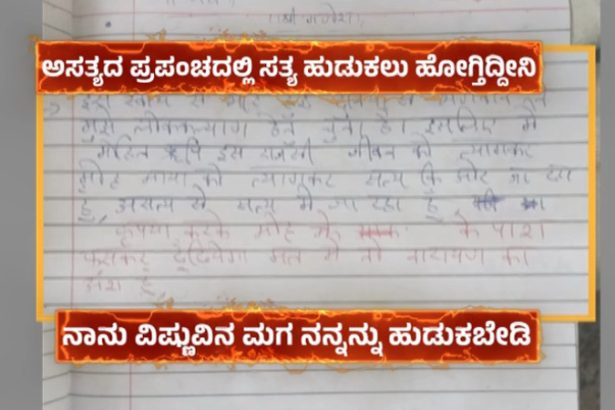 श्री गणेशा
ಅಸತ್ಯದ ಪ್ರಪಂಚದಲ್ಲಿ ಸತ್ಯ ಹುಡುಕಲು ಹೋಗ್ತಿದ್ದೀನಿ
मुझे लोककल्याण हेतु चुना है। इसलिए मैं
इस जीवन को त्यागकर
मोह माया को त्यागकर सत्य कि ओर जा रहा
हूँ असत्य से सत्य में जा रहा हूँ
कृपया करके मोह के पाश
फसाकर मत मैं तो नारायण का
अंश हूँ
ನಾನು ವಿಷ್ಣುವಿನ ಮಗ ನನ್ನನ್ನು ಹುಡುಕಬೇಡಿ